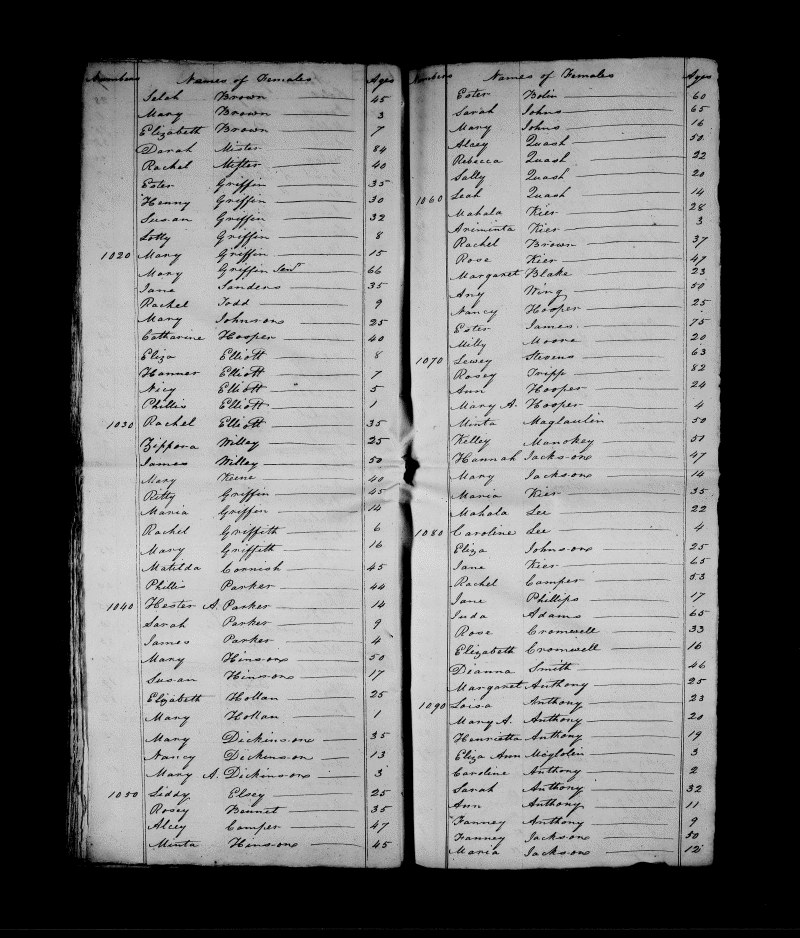 Numbers Names of Females Ages
Selah Brown 45
Mary Brown 3
Elizabeth Brown 7
Darah Mister 84
Rachel Mister 40
Ester Griffin 35
Henny Griffin 30
Susan Griffin 32
Lotty Griffin 8
1020 Mary Griffin 15
Mary Griffin Senr 66
Jane Sanders 35
Rachel Todd 9
Mary Johnson 25
Catharine Hooper 40
Eliza Elliott 8
Hanner Elliott 7
Nicy Elliott 5
Phillis Elliott 1
1030 Rachel Elliott 35
Zippora Willey 25
James Willey 50
Mary Keene 40
Ritty Griffin 45
Maria Griffin 14
Rachel Griffith 6
Mary Griffith 16
Matilda Cornish 45
Phillis Parker 44
1040 Hester A. Parker 14
Sarah Parker 9
James Parker 4
Mary Hinson 50
Susan Hinson 17
Elizabeth Hollan 25
Mary Hollan 1
Mary Dickinson 35
Nancy Dickinson 13
Mary A. Dickinson 3
1050 Liddy Elsey 25
Rosey Bennet 35
Alcey Camper 47
Minta Hinson 45
Numbers Names of Females Ages
Ester Bolin 60
Sarah Johns 65
Mary Johns 16
Alcey Quash 50
Rebecca Quash 22
Sally Quash 20
1060 Leah Quash 14
Mahala Kier 28
Ariminta Kier 3
Rachel Brown 37
Rose Kier 47
Margaret Blake 23
Any Wing 50
Nancy Hooper 25
Ester James 75
Milly Moore 20
1070 Lewey Stevens 63
Rosey Tripp 82
Ann Hooper 24
Mary A. Hooper 4
Minta Maglaulin 50
Kelley Manokey 51
Hannah Jackson 47
Mary Jackson 14
Maria Kier 35
Mahala Lee 22
1080 Caroline Lee 4
Eliza Johnson 25
Jane Kier 65
Rachel Camper 53
Jane Phillips 17
Juda Adams 65
Rose Cromwell 33
Elizabeth Cromwell 16
Dianna Smith 46
Margaret Anthony 25
1090 Loisa Anthony 23
Mary A. Anthony 20
Henrietta Anthony 19
Eliza Ann Maglolin 3
Caroline Anthony 2
Sarah Anthony 32
Ann Anthony 11
Fanney Anthony 9
Fanney Jackson 50
Maria Jackson 12